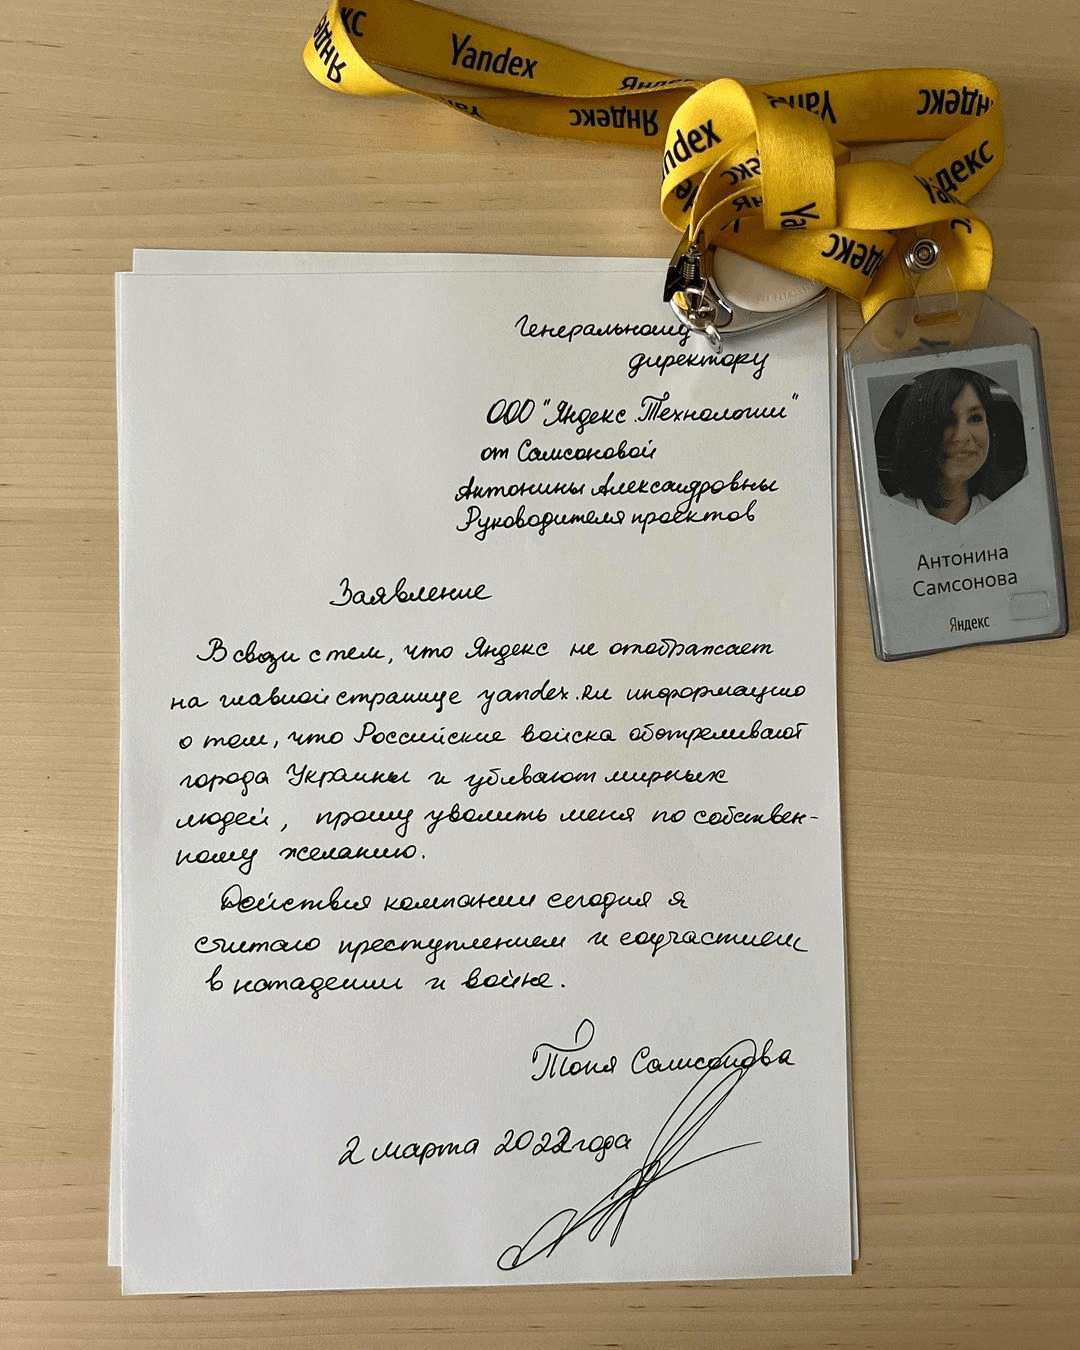 Яндекс
Yandex
Яндекс
Yandex
Яндекс
Yandex
Яндекс
Генеральному
директору
ООО "Яндекс.Технологии"
от Самсоновой
Антонины Александровны
Руководителя проектов
Заявление
В связи с тем, что Яндекс не отображает
на главной странице yandex.ru информацию
о том, что Российские войска обстреливают
города Украины и убивают мирных
людей, прошу уволить меня по собствен-
ному желанию.
Действия компании сегодня я
считаю преступлением и соучастием
в нападении и войне.
Тоня Самсонова
2 марта 2022 года
Антонина
Самсонова
Яндекс